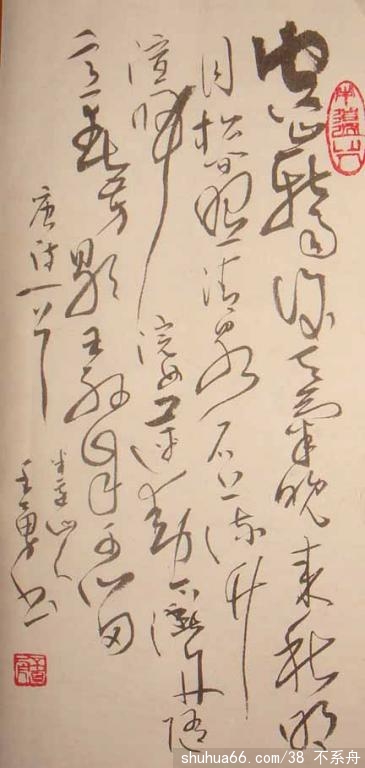 空山新雨后天气晚来秋明
月松间照清泉石上流竹
喧归浣女莲动下渔舟随
意春芳歇王孙自可留
唐诗一首
山人
王勇书
shuhua66.com/38 不系舟